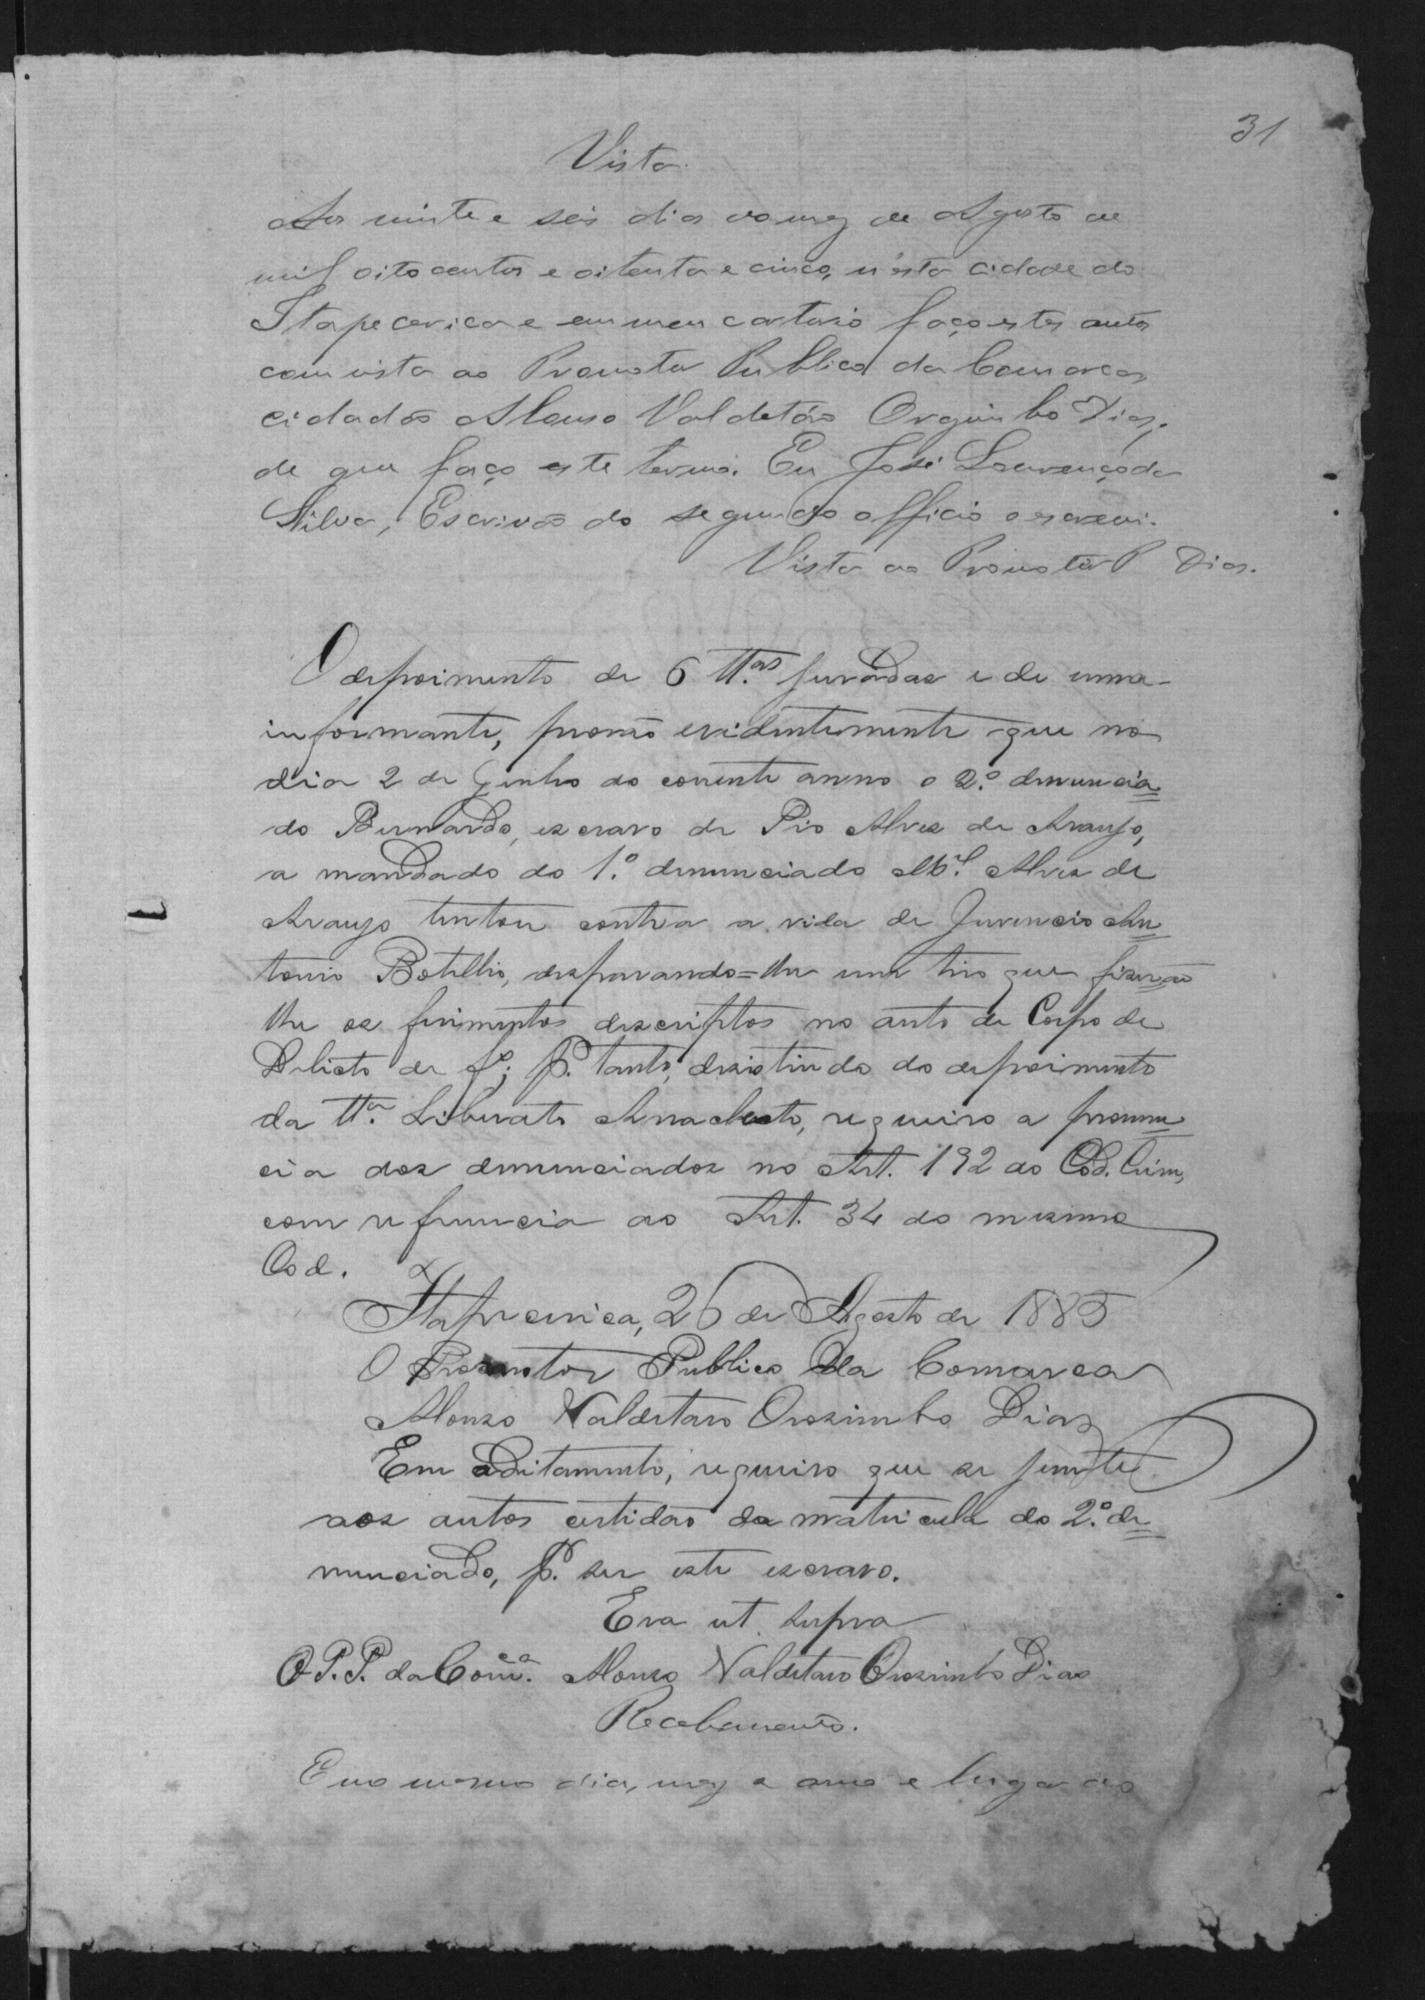 31
Vista
Aos vinte e seis dias do mez de Agosto de
mil oito centos e oitenta e cinco, n'esta cidade do
Itapecerica e em meu cartorio faço estes autos
com vista ao Promotor Publico da Comarca,
cidadão Alonso Valdetáro Orozimbo Dias,
de que faço este termo. Eu José Lourenço da
Silva, Escrivão do segundo officio o escrevi.
Vista ao Promotor P Dias.
O depoimento de 6 tt.as juradas e de uma
informante, provão evidentemente que no
dia 2 de Junho do corrente anno o 2.º denuncia=
do Bernardo, escravo de Pio Alves de Araujo,
a mandado do 1.º denunciado M.el Alves de
Araujo tentou contra a vida de Juvencio An=
tonio Botelho, disparando=lhe um tiro que fizerão
lhe os ferimentos descriptos no auto de Corpo de
Delicto de f; p. tanto, desistindo do depoimento
da tt.a Liberato Anacleto, requeiro a pronun=
cia dos denunciados no Art. 192 do Cod. Crim,
com referencia ao Art. 34 do mesmo
Cod.
Itapecerica, 26 de Agosto de 1885
O Promotor Publico da Comarca
Alonso Valdetaro Orosimbo Dias
Em additamento, requeiro que se junte
aos autos certidão da matricula do 2.º de=
nunciado, p. ser este escravo.
Era ut supra
O P. P. da Com.ca Alonso Valdetaro Orosimbo Dias
Recebimento.
E no mesmo dia, mez e anno e lugar ao